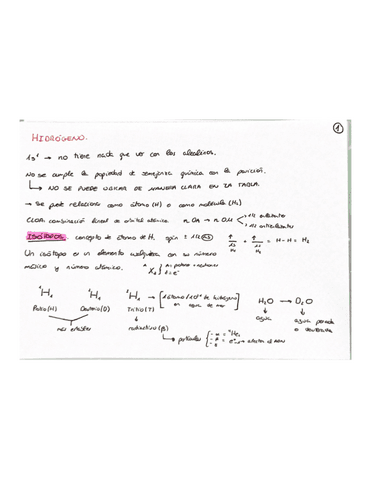 1
HIDRÓGENO:
1s¹ → no tiene nada que ver con los alcalinos.
No se cumple la propiedad de semejanza química con la posición.
↳ NO SE PUEDE UBICAR DE MANERA CLARA EN LA TABLA.
→ Se puede relacionar como átomo (H) o como molécula (H₂)
CLOA: combinación lineal de orbital atómico. n OA → n OM < 1/2 enlazantes
1/2 antienlazantes
ISÓTOPOS: concepto de átomo de H. spin = ± 1/2
+ = H-H = H₂
Un isótopo es un elemento cualquiera con su número
másico y número atómico.
¹H₁ ²H₁ ³H₁ → [1 átomo/10¹⁸ de hidrógeno
en agua de mar]
H₂O → D₂O
Protio (H) Deuterio (D) Tritio (T)
agua agua pesada
o deuterada
más estables radioactivo (β)
↳ partículas